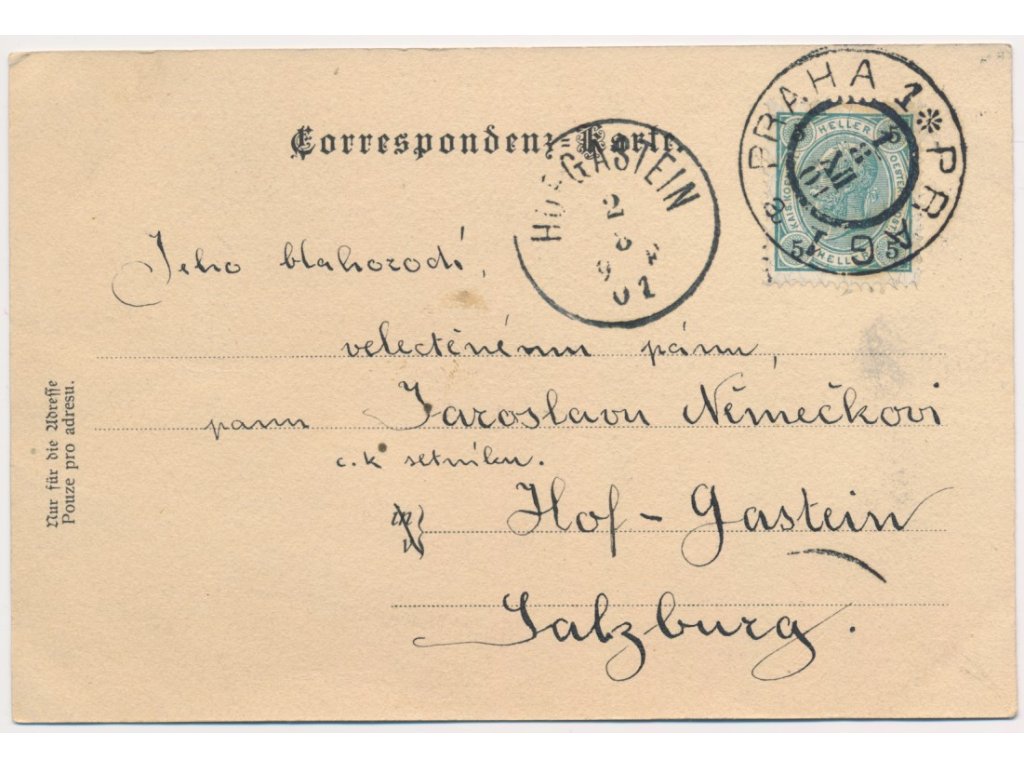 Correspondenz-Karte.
PRAHA 1 * PRAG 1
HELLER
5 5
KAIS. KOE OESTER
HELLER
5 5
HOFGASTEIN
01
Jeho blahorodí,
velectěnému pánu,
panu Jaroslavu Němečkovi
c. k setníku.
v Hof-Gastein
Salzburg.
Nur für die Adresse
Pouze pro adresu.